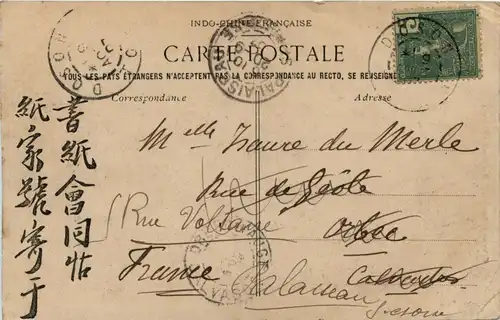 INDO-CHINE FRANÇAISE
CARTE POSTALE
TOUS LES PAYS ÉTRANGERS N'ACCEPTENT PAS LA CORRESPONDANCE AU RECTO, SE RENSEIGNE
Correspondance
Adresse
Melle Laure du Merle
Rue de Geôle
Rue Voltaire
Orbec
France
Calvados
書紙會同帖
紙家號寄于